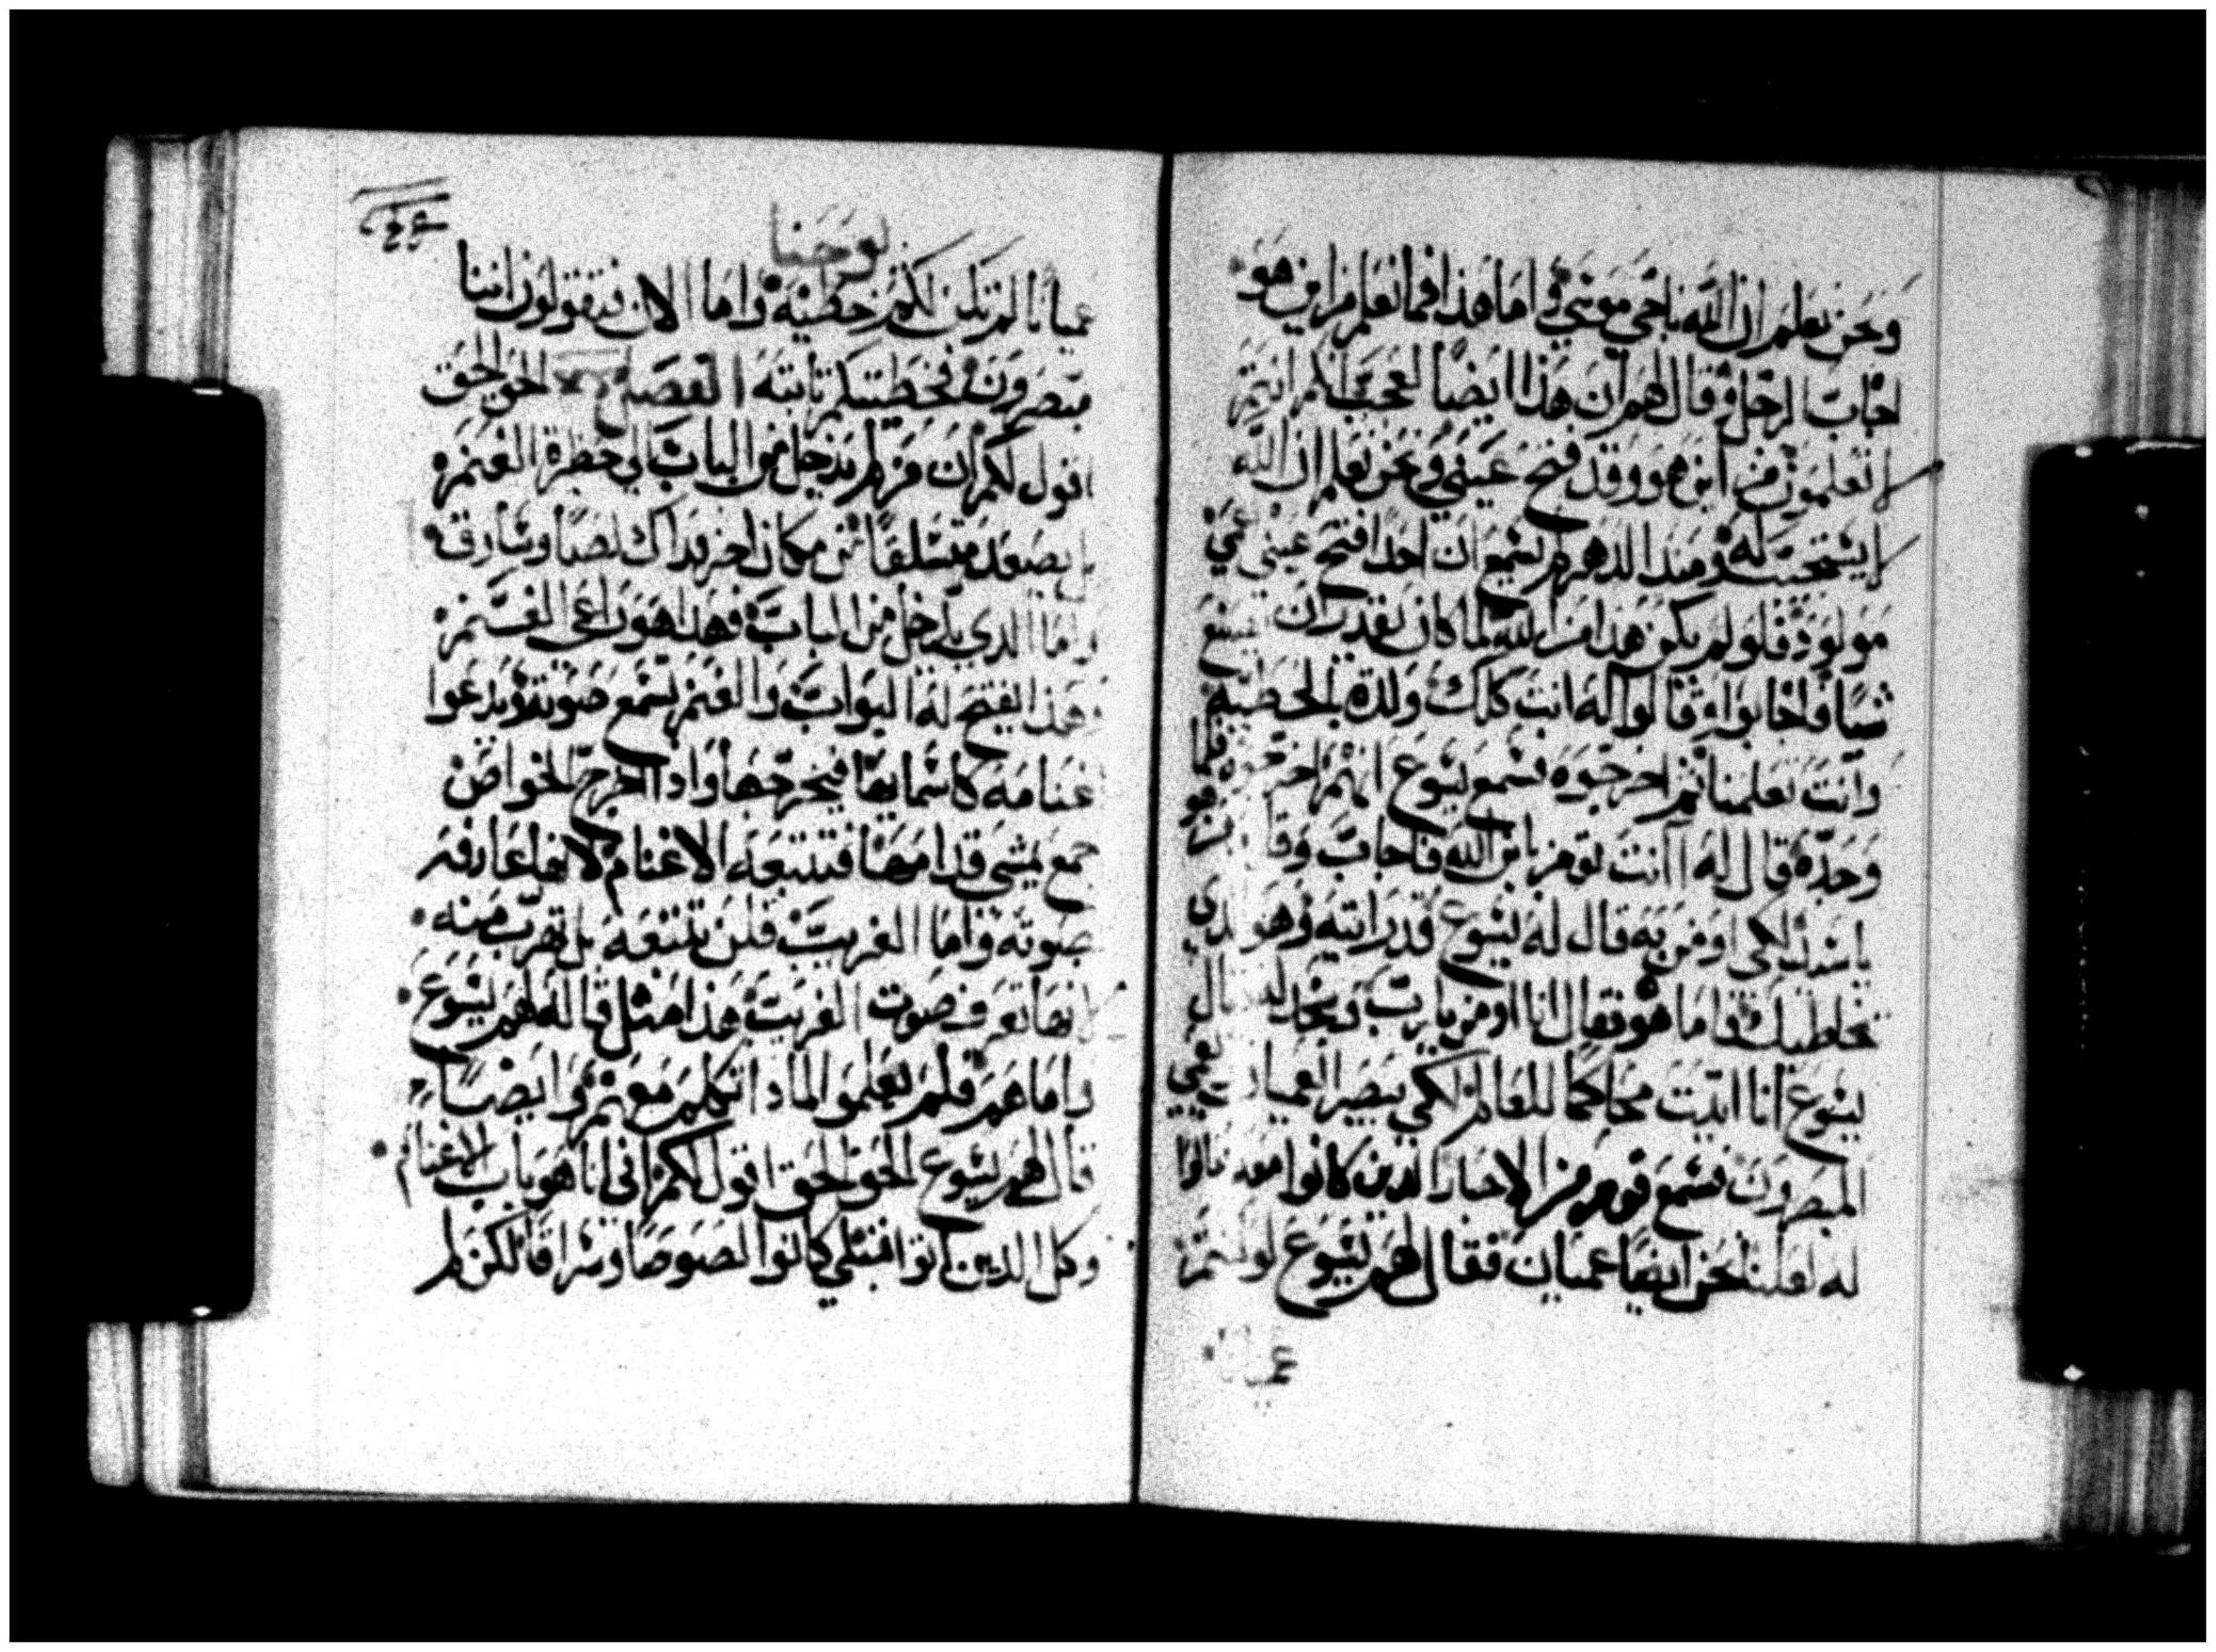 ونحن نعلم ان الله ناجى موسى واما هذا فما نعلم من اين هو
اجاب الرجل وقال لهم ان هذا ايضا لعجب انكم انتم
لا تعلمون من اين هو وقد فتح عيني ونحن نعلم ان الله
لا يستجيب له ومنذ الدهر لم يسمع ان احدا فتح عيني عمي
مولود فلو لم يكن هذا من الله لما كان يقدر ان يصنع
شيا فاجابوا وقالوا له انت كلك ولدة بالخطيه
وانت تعلمنا ثم اخرجوه فسمع يسوع انهم اخرجوه فلما
وجده قال له اانت تومن بابن الله فاجاب وقال من هو
ياسيد لكي اومن به قال له يسوع قد رايته وهو الدي
يخاطبك فاما هو فقال انا اومن يارب وسجد له قال
يسوع انا اتيت محاكما للعالم لكي يبصر العميان ويعمي
المبصرون فسمع قوم من الاحبار الدين كانوا معه قالوا
له لعلنا نحن ايضا عميان فقال لهم يسوع لو كنتم
عميانا
يوحنا
عميانا لم تكن لكم خطيه واما الان فتقولون اننا
مبصرون فخطيتكم تابته الفصل الحق الحق
اقول لكم ان من لم يدخل من الباب الى حظرة الغنم
بل يصعد متسلقا من مكان اخر فداك لصا وسارق
واما الدي يدخل من الباب فهدا هو راعي الغنم
وهذا يفتح له البواب والغنم يسمع صوته ويدعوا
غنامه كاسمايها فيخرجها واذا اخرج الخواص
جمع يمشي قدامها فتتبعه الاغنام لانها عارفه
صوته واما الغريب فلن تتبعه بل تهرب منه
لانها تعرف صوت الغريب هذا مثل قاله لهم يسوع
واما هم فلم يعلموا لمادا تكلم معهم وايضا
قال لهم يسوع الحق الحق اقول لكم اني انا هو باب الاغنام
وكل الدين اتوا قبلي كانوا لصوصا وسراقا لكن لم